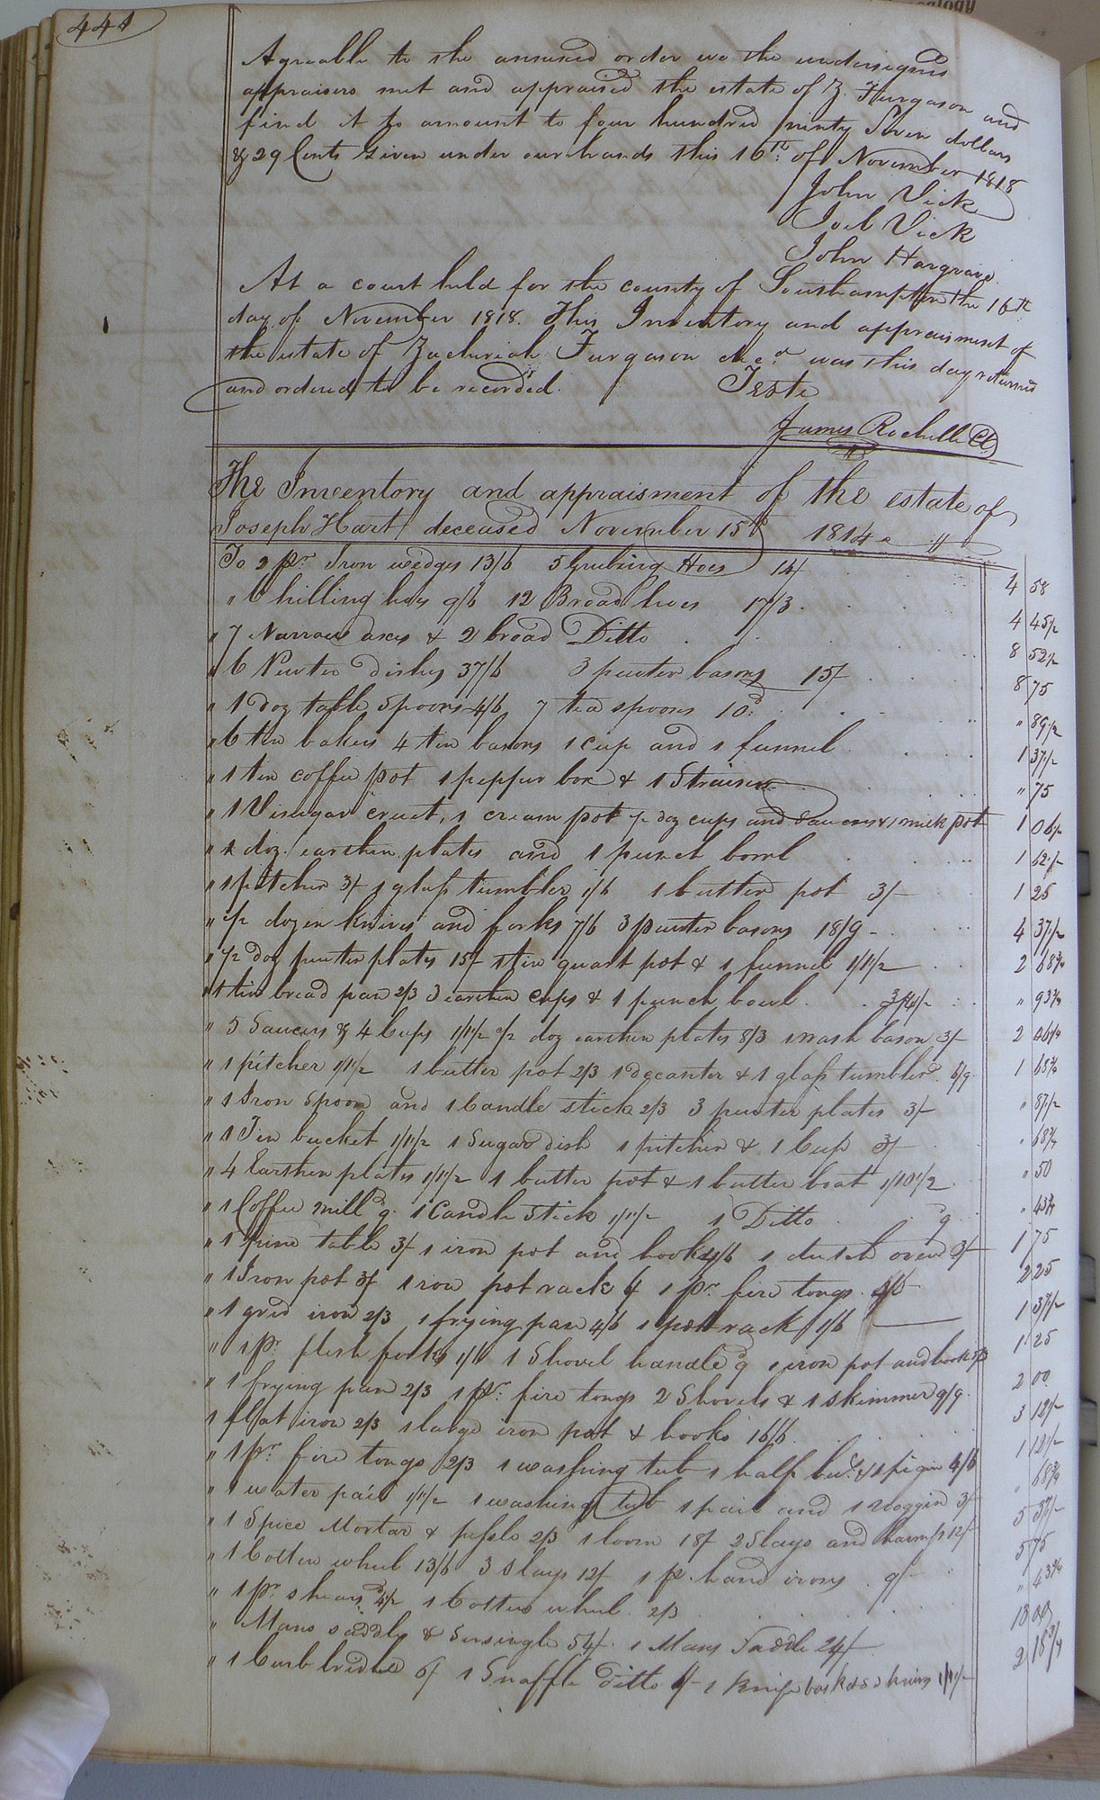 441
Agreable to the annexed order we the undersigned
appraisers met and appraised the estate of Z. Furgason and
find it to amount to four hundred ninty Seven dollars
& 29 Cents Given under our hands this 16th of November 1818
John Vick
Joel Vick
John Hargrave
At a court held for the county of Southampton the 16th
day of November 1818. This Inventory and appraisment of
the estate of Zachariah Furgason decd was this day returned
and ordered to be recorded. Teste
James Rochelle Cl
The Inventory and appraisment of the estate of
Joseph Hart deceased November 15th 1814
To 2 pr Iron wedges 13/6 5 Grubing Hoes 14/ 4 58
" 6 hilling hoes 9/6 12 Broad hoes 17/3 4 45½
" 7 Narrow axes & 2 broad Ditto 8 52½
" 6 Pewter dishes 37/6 3 pewter basons 15/ 8 75
" 1 doz table Spoons 4/6 7 tea spoons 10d " 89½
" 6 tin bakers 4 tin basons 1 cup and 1 funnel 1 37½
" 1 tin coffee pot 1 pepper box & 1 Strainer " 75
" 1 Vinegar cruet, 1 cream pot ½ doz cups and Saucers & 1 milk pot 1 06½
" 1 doz. earthen plates and 1 punch bowl 1 62½
" 1 pitcher 3/ 1 glass tumbler 1/6 1 butter pot 3/ 1 25
" ½ dozen knives and forks 7/6 3 pewter basons 18/9 4 37½
" ½ doz pewter plates 15/ 1 tin quart pot & 1 funnel 1/1½ 2 68¾
" 1 tin bread pan 2/3 3 earthen cups & 1 punch bowl 3/4½ " 93¾
" 5 Saucers & 4 Cups 1/1½ ½ doz earthen plates 8/3 1 wash bason 3/ 2 06¼
" 1 pitcher 1/1½ 1 butter pot 2/3 1 decanter & 1 glass tumbler 6/9 1 68¾
" 1 Iron Spoon and 1 Candle stick 2/3 3 pewter plates 3/ " 87½
" 1 Tin bucket 1/1½ 1 Sugar dish 1 pitcher & 1 Cup 3/ " 68¾
" 4 Earthen plates 1/1½ 1 butter pot & 1 butter boat 1/10½ " 50
" 1 Coffee mill 9d 1 Candle Stick 1/1½ 1 Ditto 9 " 43¾
" 1 pine table 3/ 1 iron pot and hooks 4/6 1 dutch oven 3/ 1 75
" 1 Iron pot 3/ 1 iron pot rack 6/ 1 pr fire tongs 4/6 2 25
" 1 grid iron 2/3 1 frying pan 4/6 1 pot rack 1/6 1 37½
" 1 pr flesh forks 1/6 1 Shovel handle 9d 1 iron pot and hooks 5/3 1 25
" 1 frying pan 2/3 1 pr fire tongs 2 Shovels & 1 skimmer 9/9 2 00
1 flat iron 2/3 1 large iron pot & hooks 16/6 3 12½
" 1 pr fire tongs 2/3 1 washing tub 1 half bus. & 1 pigin 4/6 1 12½
" 1 water pail 1/1½ 1 washing tub 1 pail and 1 noggin 3/ " 68¾
" 1 Spice Mortar & pestle 2/3 1 loom 18/ 2 Slays and harness 12/ 5 37½
" 1 Cotten wheel 13/6 3 Slays 12/ 1 pr. hand irons 9/ 5 75
" 1 pr shears 4½d 1 Cotten wheel 2/3 " 43¾
" Mans saddle & Sursingle 54/ 1 Mans Saddle 24/ 13 00
" 1 Curb bridle 6/ 1 Snaffle ditto 6/ 1 knife box & 2 knives 1/1½ 2 18¾